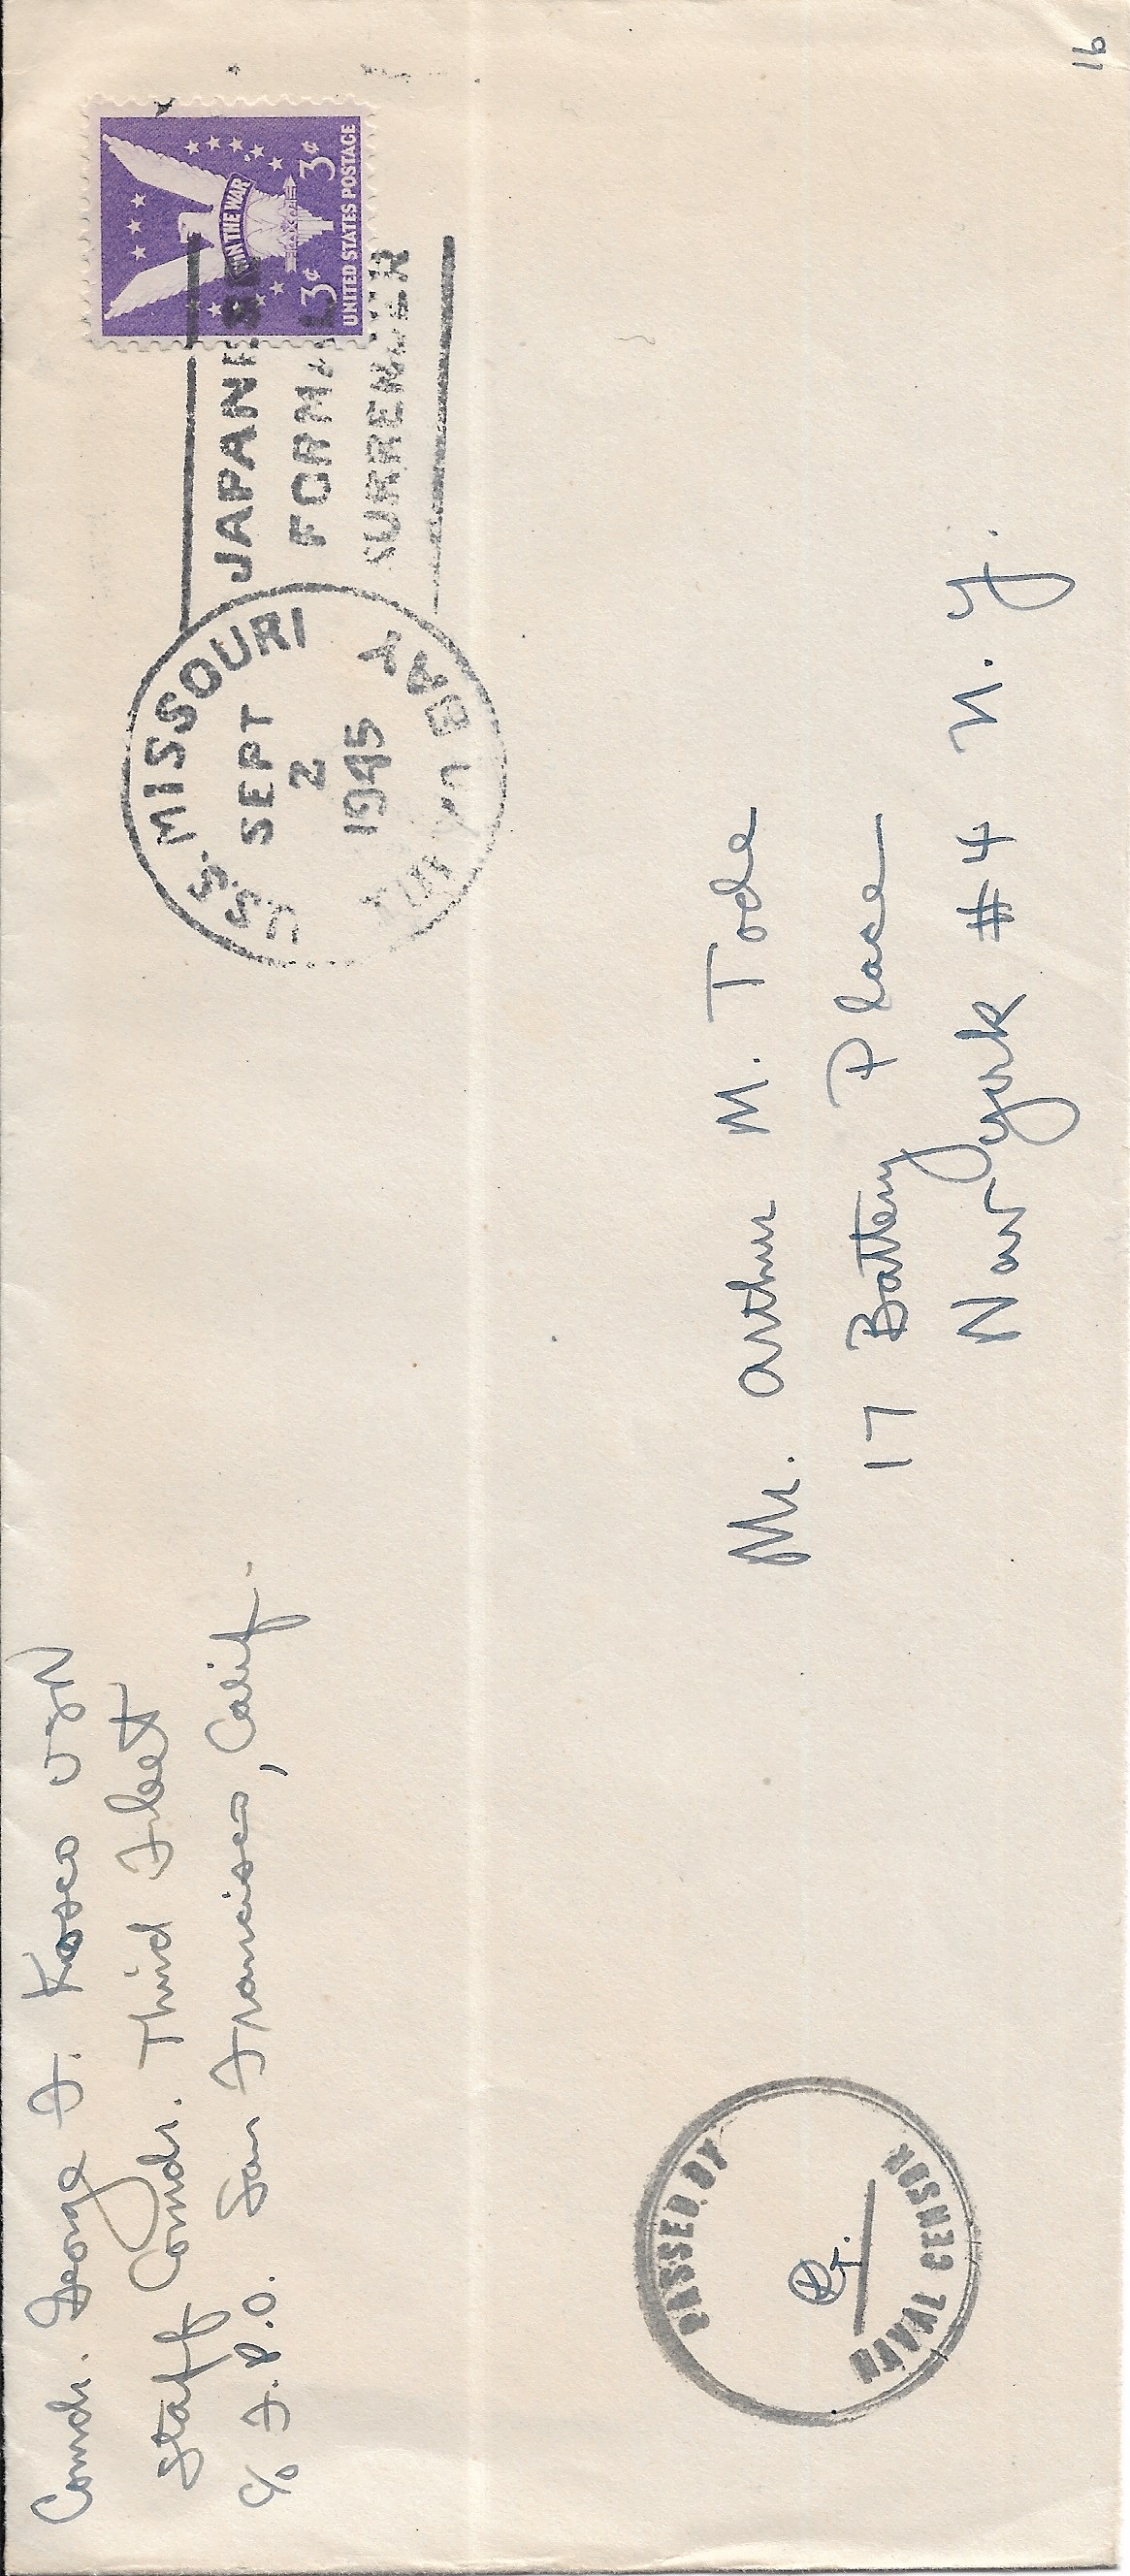 Comdr. George F. Kosco USN
Staff Comdr. Third Fleet
c/o F.P.O. San Francisco, Calif.
U.S.S. MISSOURI
SEPT
2
1945
BAY
JAPANESE
FORMAL
SURRENDER
WIN THE WAR
3¢ 3¢
UNITED STATES POSTAGE
Mr. Arthur M. Tode
17 Battery Place
New York #4 N.Y.
PASSED BY
NAVAL CENSOR
16